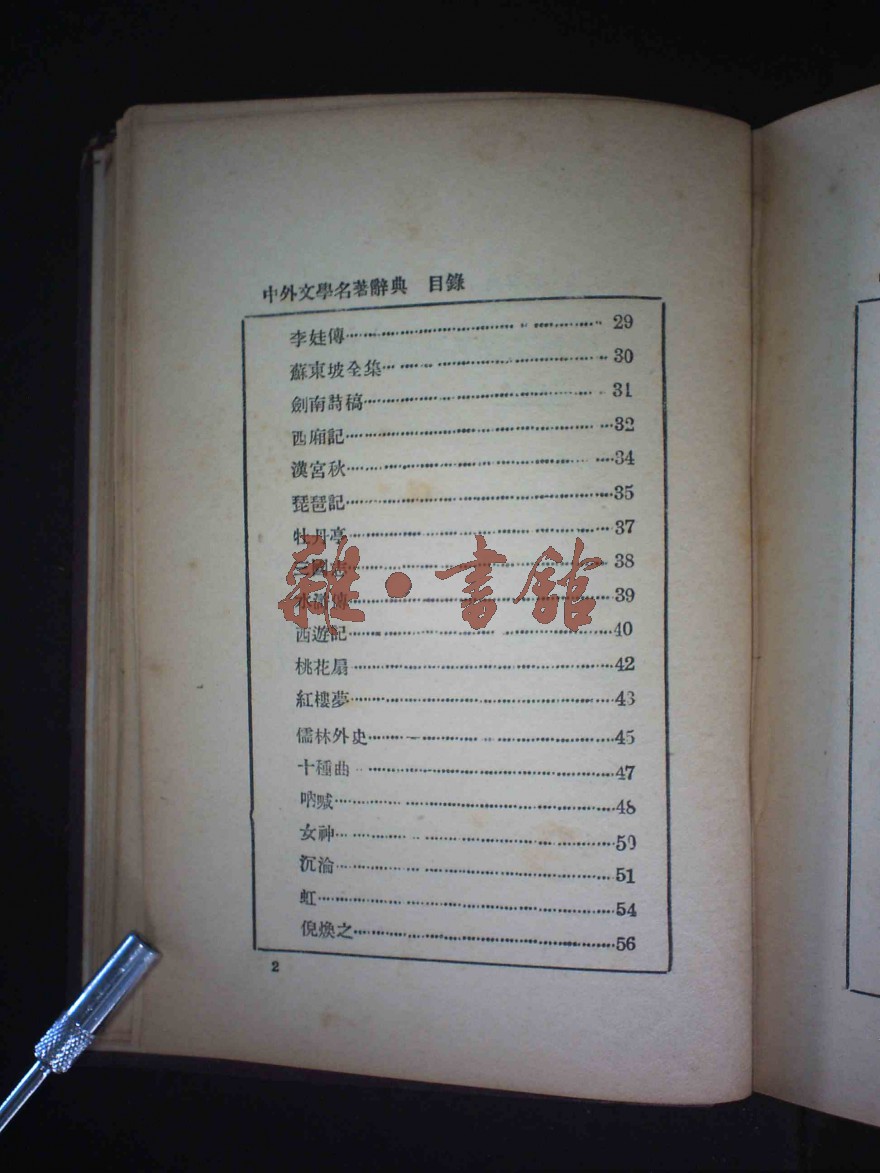 中外文學名著辭典 目錄
李娃傳 29
蘇東坡全集 30
劍南詩稿 31
西廂記 32
漢宮秋 34
琵琶記 35
牡丹亭 37
三國志 38
水滸傳 39
西遊記 40
桃花扇 42
紅樓夢 43
儒林外史 45
十種曲 47
吶喊 48
女神 50
沉淪 51
虹 54
倪煥之 56
2
雜·書館